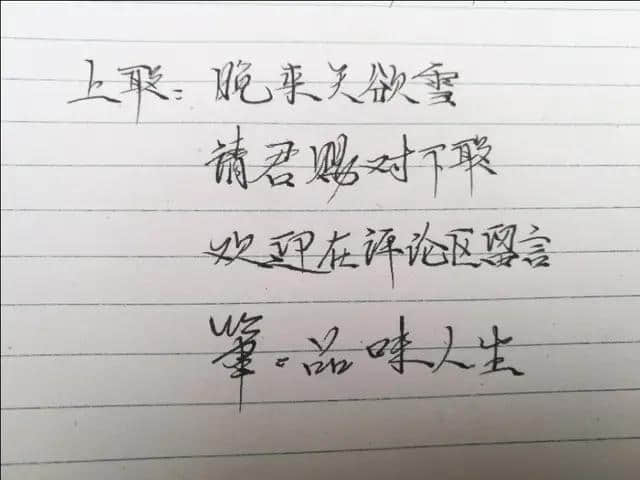 上联：晚来天欲雪
请君赐对下联
欢迎在评论区留言
笔：品味人生